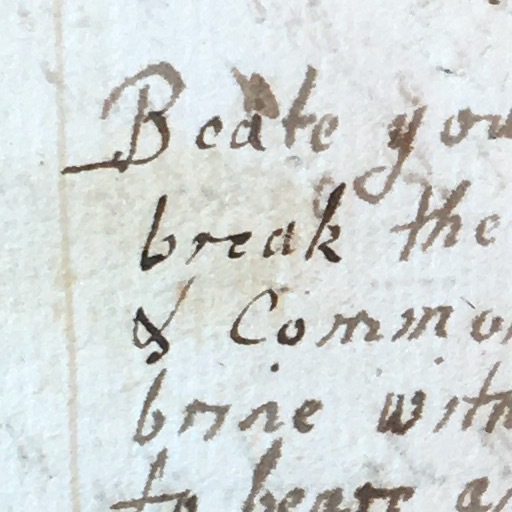 Beate you
break the
& Common
brine with
to beare a